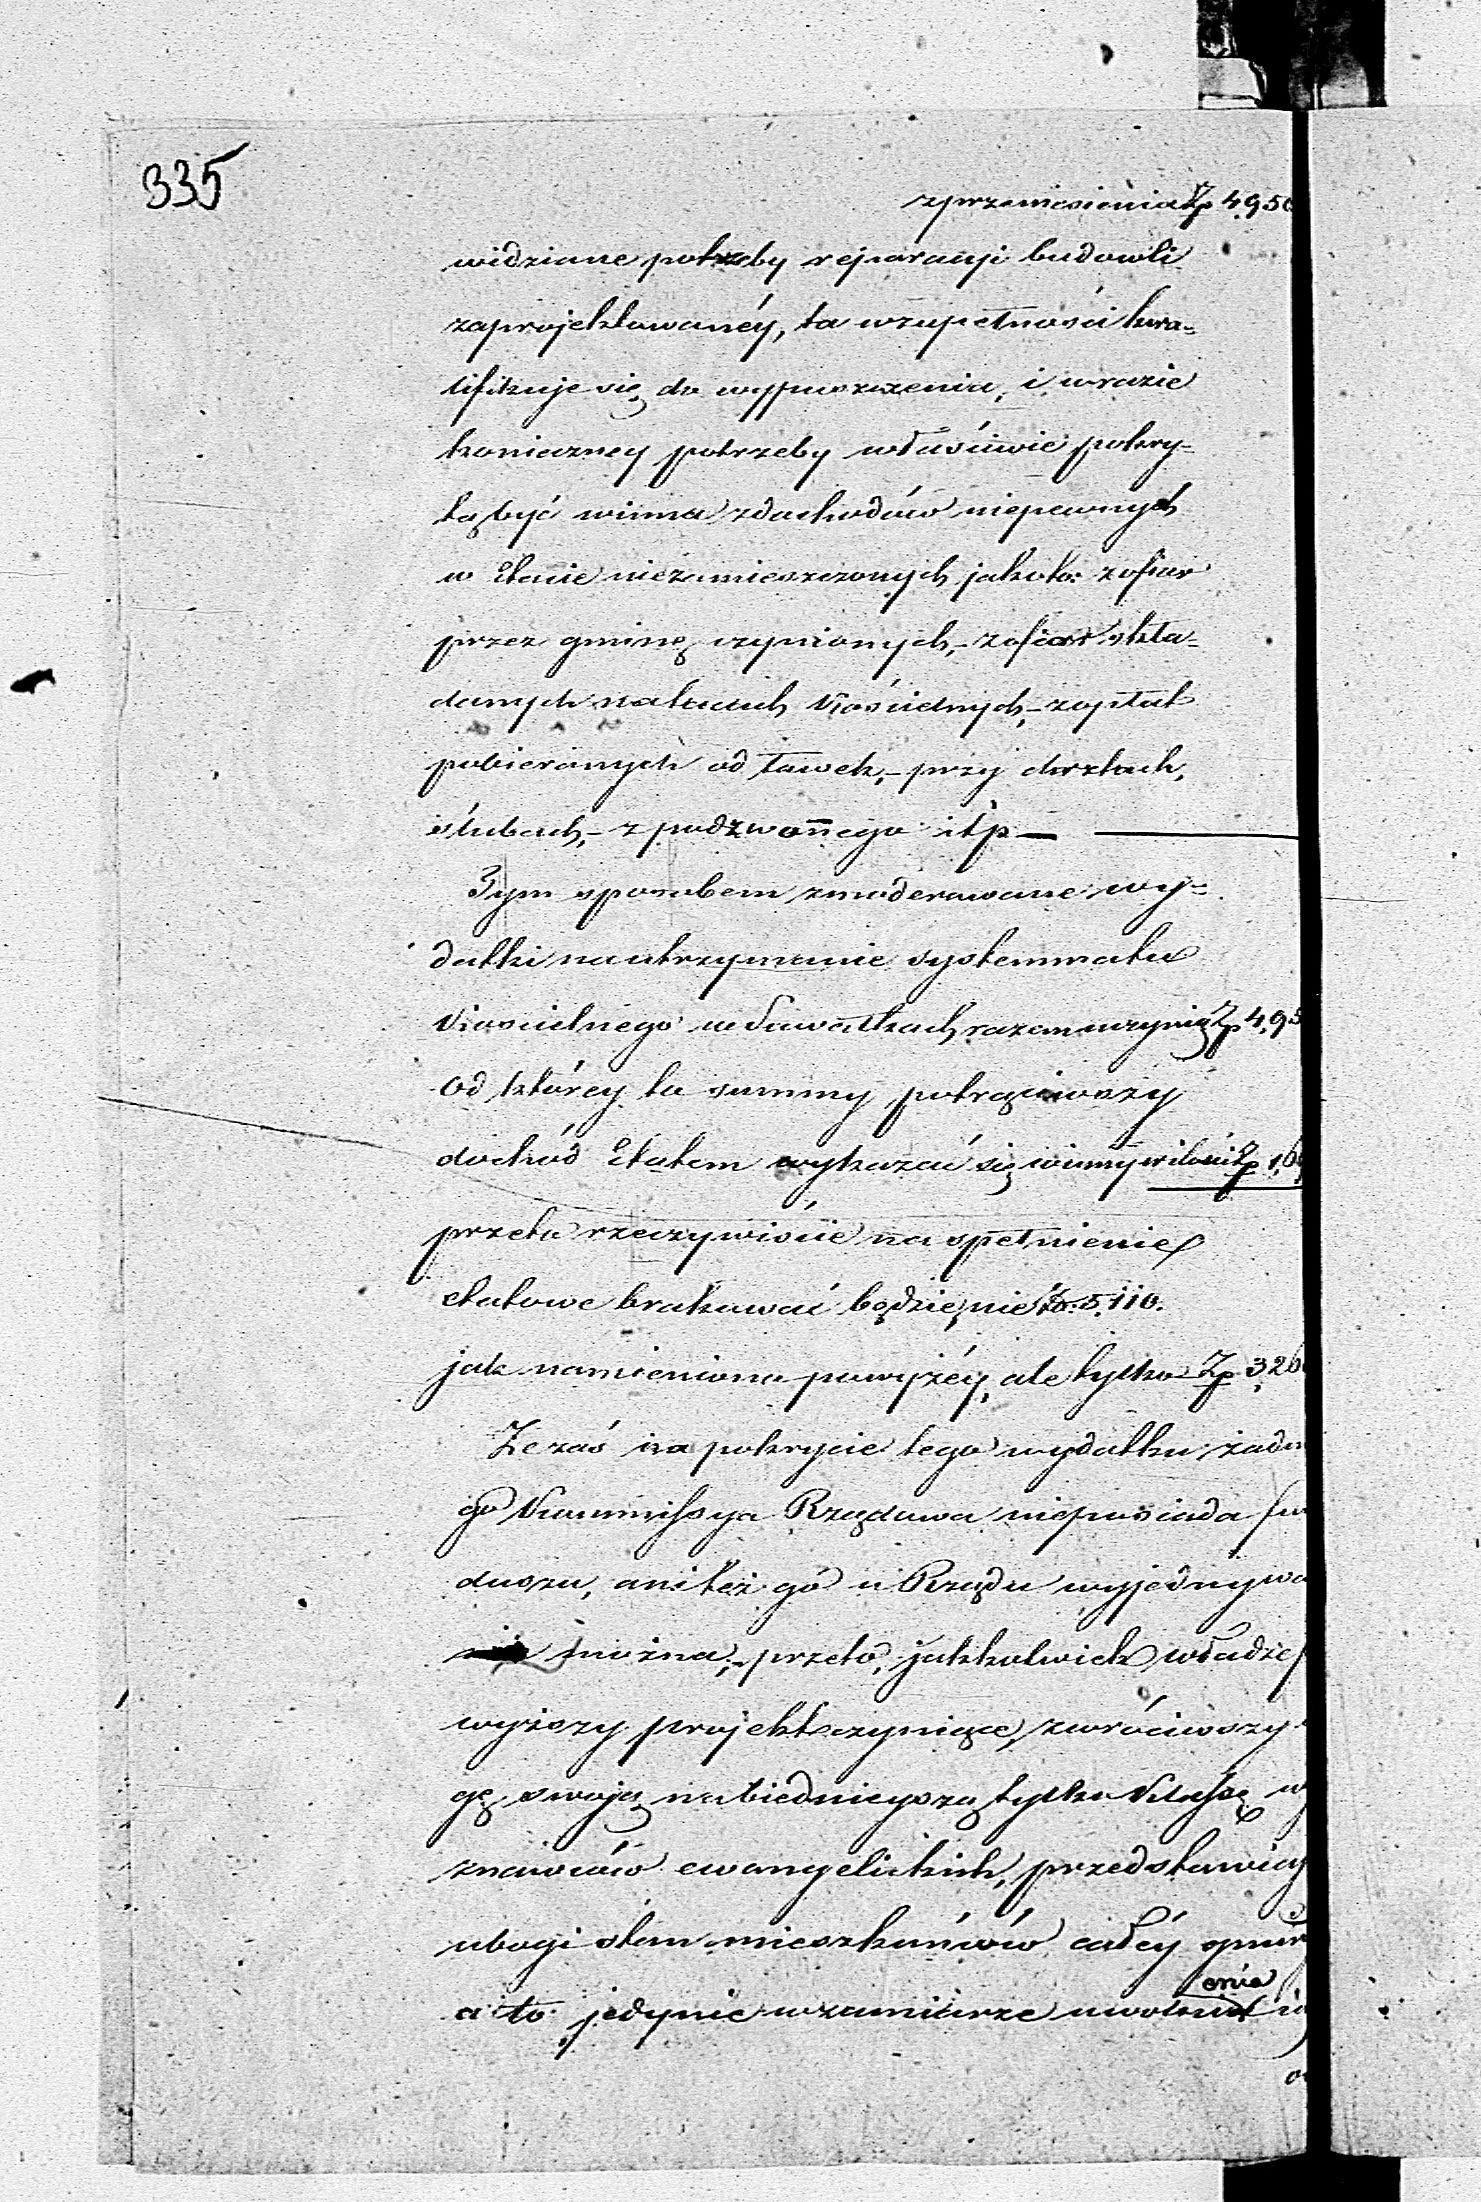 335
z przeniesienia Zp 4950
widziane potrzeby reparacyi budowli
zaprojektowanéy, ta wzupełności kwa-
lifikuje się do wypuszczenia, i wrazie
konieczney potrzeby właściwie pokry-
tą być winna zdochodów niepewnych
w Etacie niezamieszczonych jakoto: zofiar
przez gminę czynionych,- zofiar skła-
danych natacach Kościelnych,- zopłat
pobieranych od ławek,- przy chrztach,
ślubach,- z podzwonnego itp —
Tym sposobem zmoderowane wy-
datki na utrzymanie systemmatu
Kościelnego w Suwałkach razem uczynią Zp 4,95
od którey to summy potrąciwszy
dochód Etatem wykazać się winny wilości Zp 1,6
przeto rzeczywiście na spełnienie
etatowe brakować będzie, nie Zp. 5,110.
jak namieniono powyżéy, ale tylko Zp 3,26
Że zaś na pokrycie tego wydatku żadn
go Kommissya Rządowa nieposiada fun
duszu, anitéż go u Rządu wyjednywa
można,- przeto, jakkolwiek władze p
wyższy projekt czyniące, zwróciwszy
gę swoją nabiednieyszą tylko Klassę w
znawców ewangelickich, przedstawiają
ubogi stan mieszkańców całéy gmin
enia
a to jedynie wzamiarze uwolni